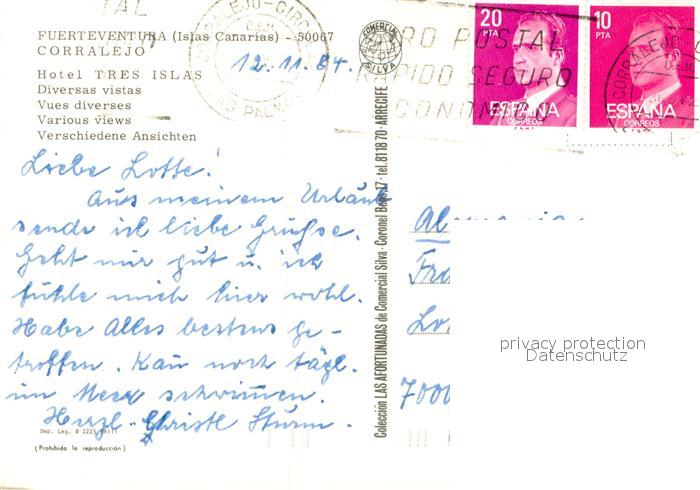 FUERTEVENTURA (Islas Canarias) - 50067
CORRALEJO
Hotel TRES ISLAS
Diversas vistas
Vues diverses
Various views
Verschiedene Ansichten
12.11.84.
Liebe Lotte!
Aus meinem Urlaub
sende ich liebe Grüße.
Geht mir gut u. ich
fühle mich hier wohl.
Habe Alles bestens ge-
troffen. Kan noch tägl.
im Meer schwimen.
Herzl. Christl Sturm.
Dep. Leg. B 2225
(Prohibida la reproducción)
Colección LAS AFORTUNADAS de Comercial Silva - Corone Bens, 17 - tel. 81 18 70 - ARRECIFE
COMERCIAL
SILVA
CORRALEJO
LAS PALMAS
POSTAL
RAPIDO SEGURO
20
PTA
ESPAÑA
CORREOS
10
PTA
ESPAÑA
CORREOS
CORRALEJO
Fra
700
privacy protection
Datenschutz